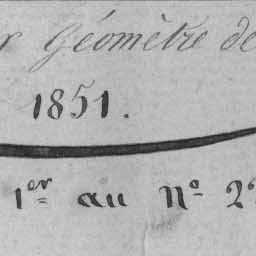 Géomètre de
1851.
1er au No 2